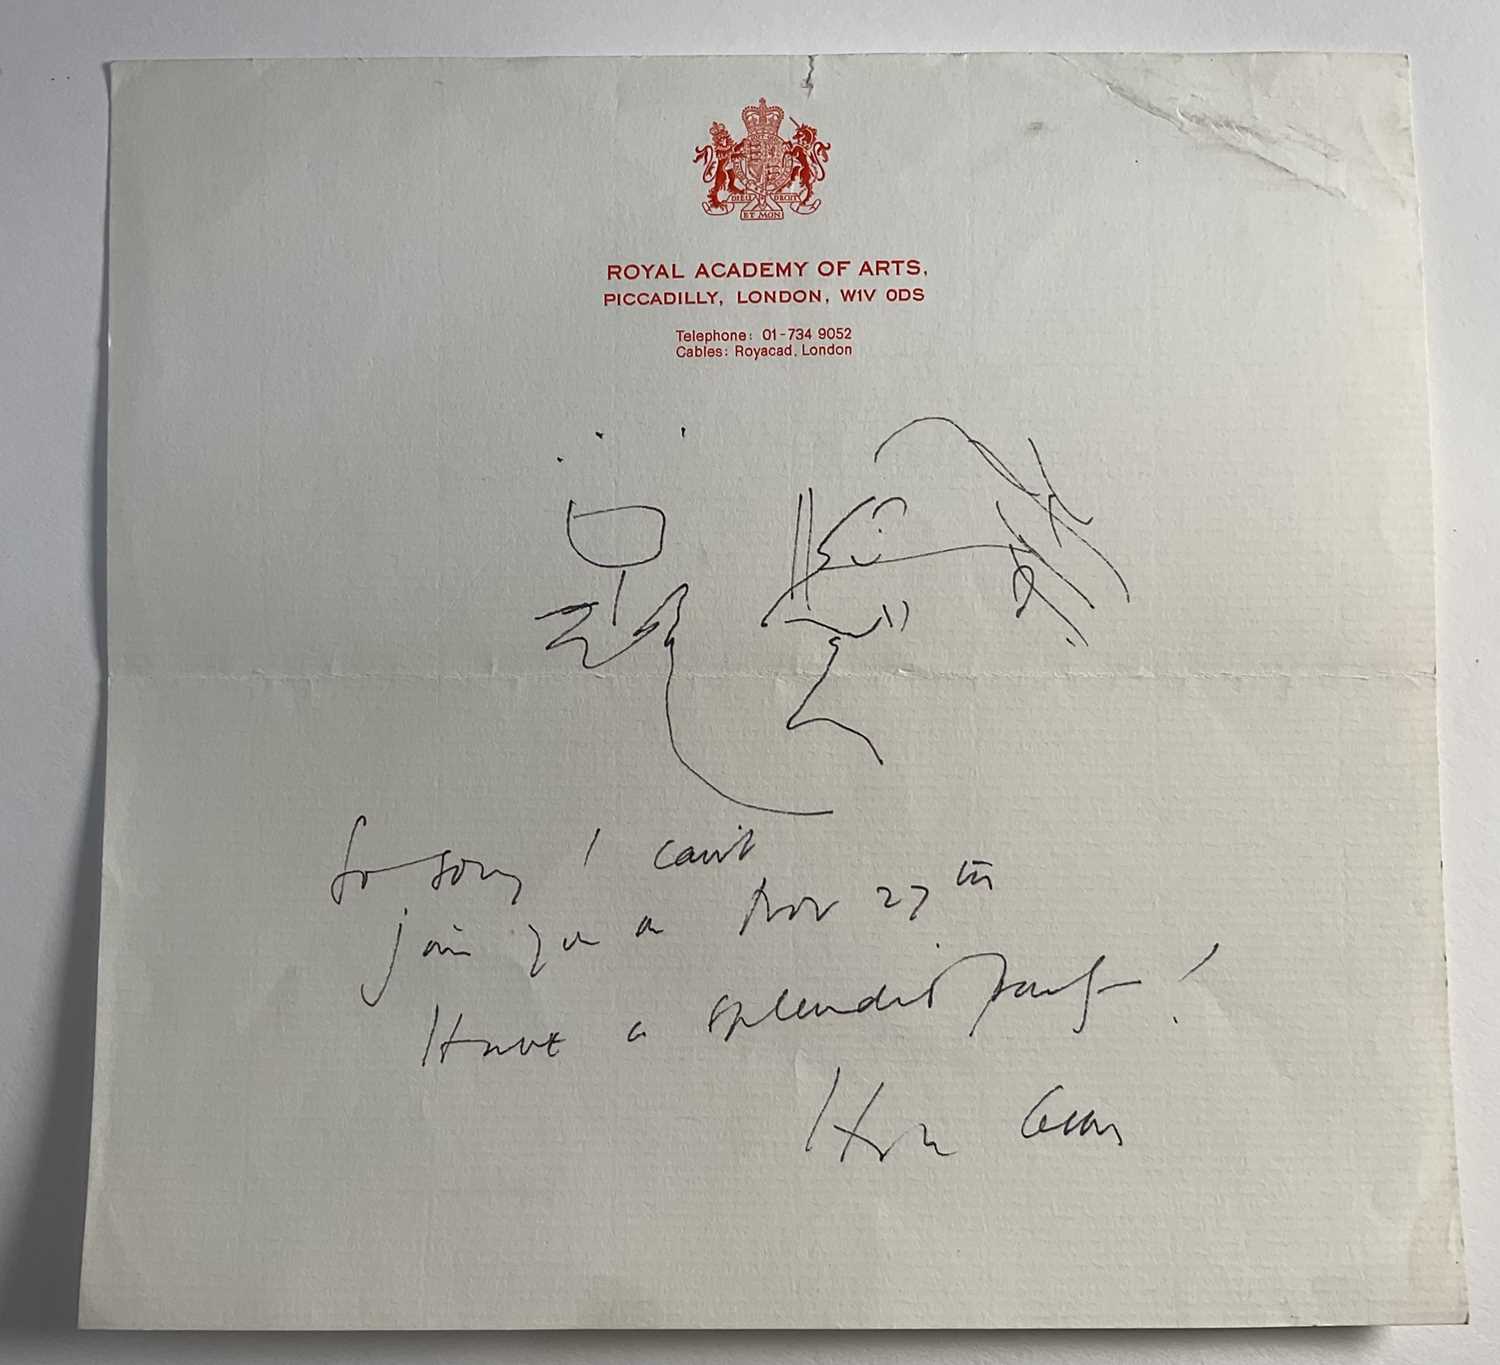 DIEU ET MON DROIT
ROYAL ACADEMY OF ARTS,
PICCADILLY, LONDON, W1V 0DS
Telephone: 01-734 9052
Cables: Royacad, London
So sorry I can't
join you on Nov 27th
Have a splendid party!
Hugh Casson